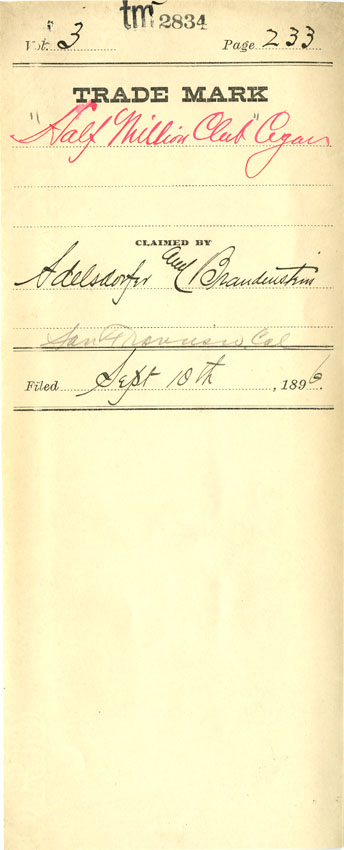 tm 2834
Vol. 3 Page 233
TRADE MARK
"Half Million Club" Cigar
CLAIMED BY
Adelsdorfer and Brandenstein
San Francisco, Cal
Filed Sept 10th, 1896.